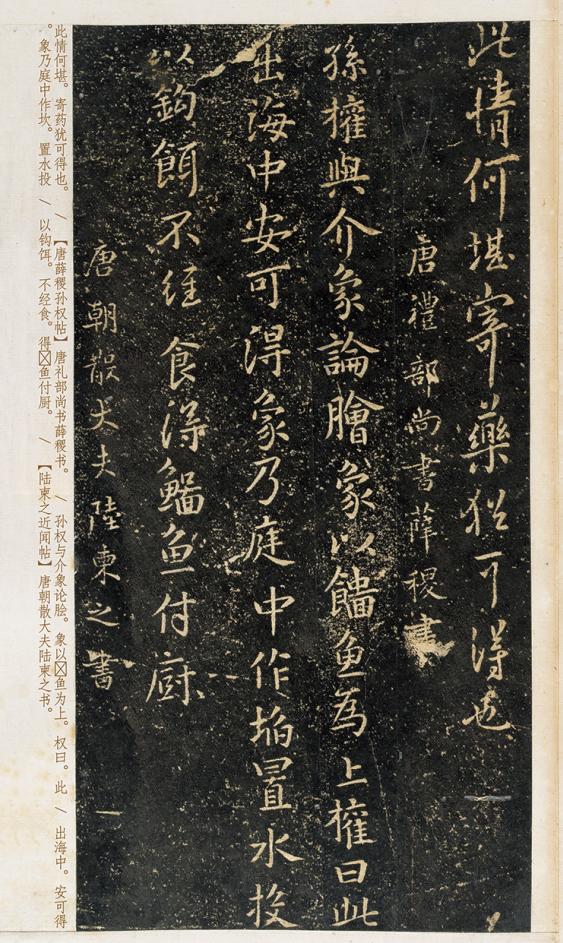 此情何堪寄藥猶可得也
唐禮部尚書薛稷書
孫權與介象論膾象以魚為上權曰此
出海中安可得象乃庭中作埳置水投
以鈎餌不經食得魚付廚
唐朝散大夫陸柬之書
此情何堪。寄药犹可得也。 / 【唐薛稷孙权帖】 唐礼部尚书薛稷书。 / 孙权与介象论脍。象以鱼为上。权曰。此 / 出海中。安可得
。象乃庭中作坎。置水投 / 以钩饵。不经食。得鱼付厨。 / 【陆柬之近闻帖】 唐朝散大夫陆柬之书。